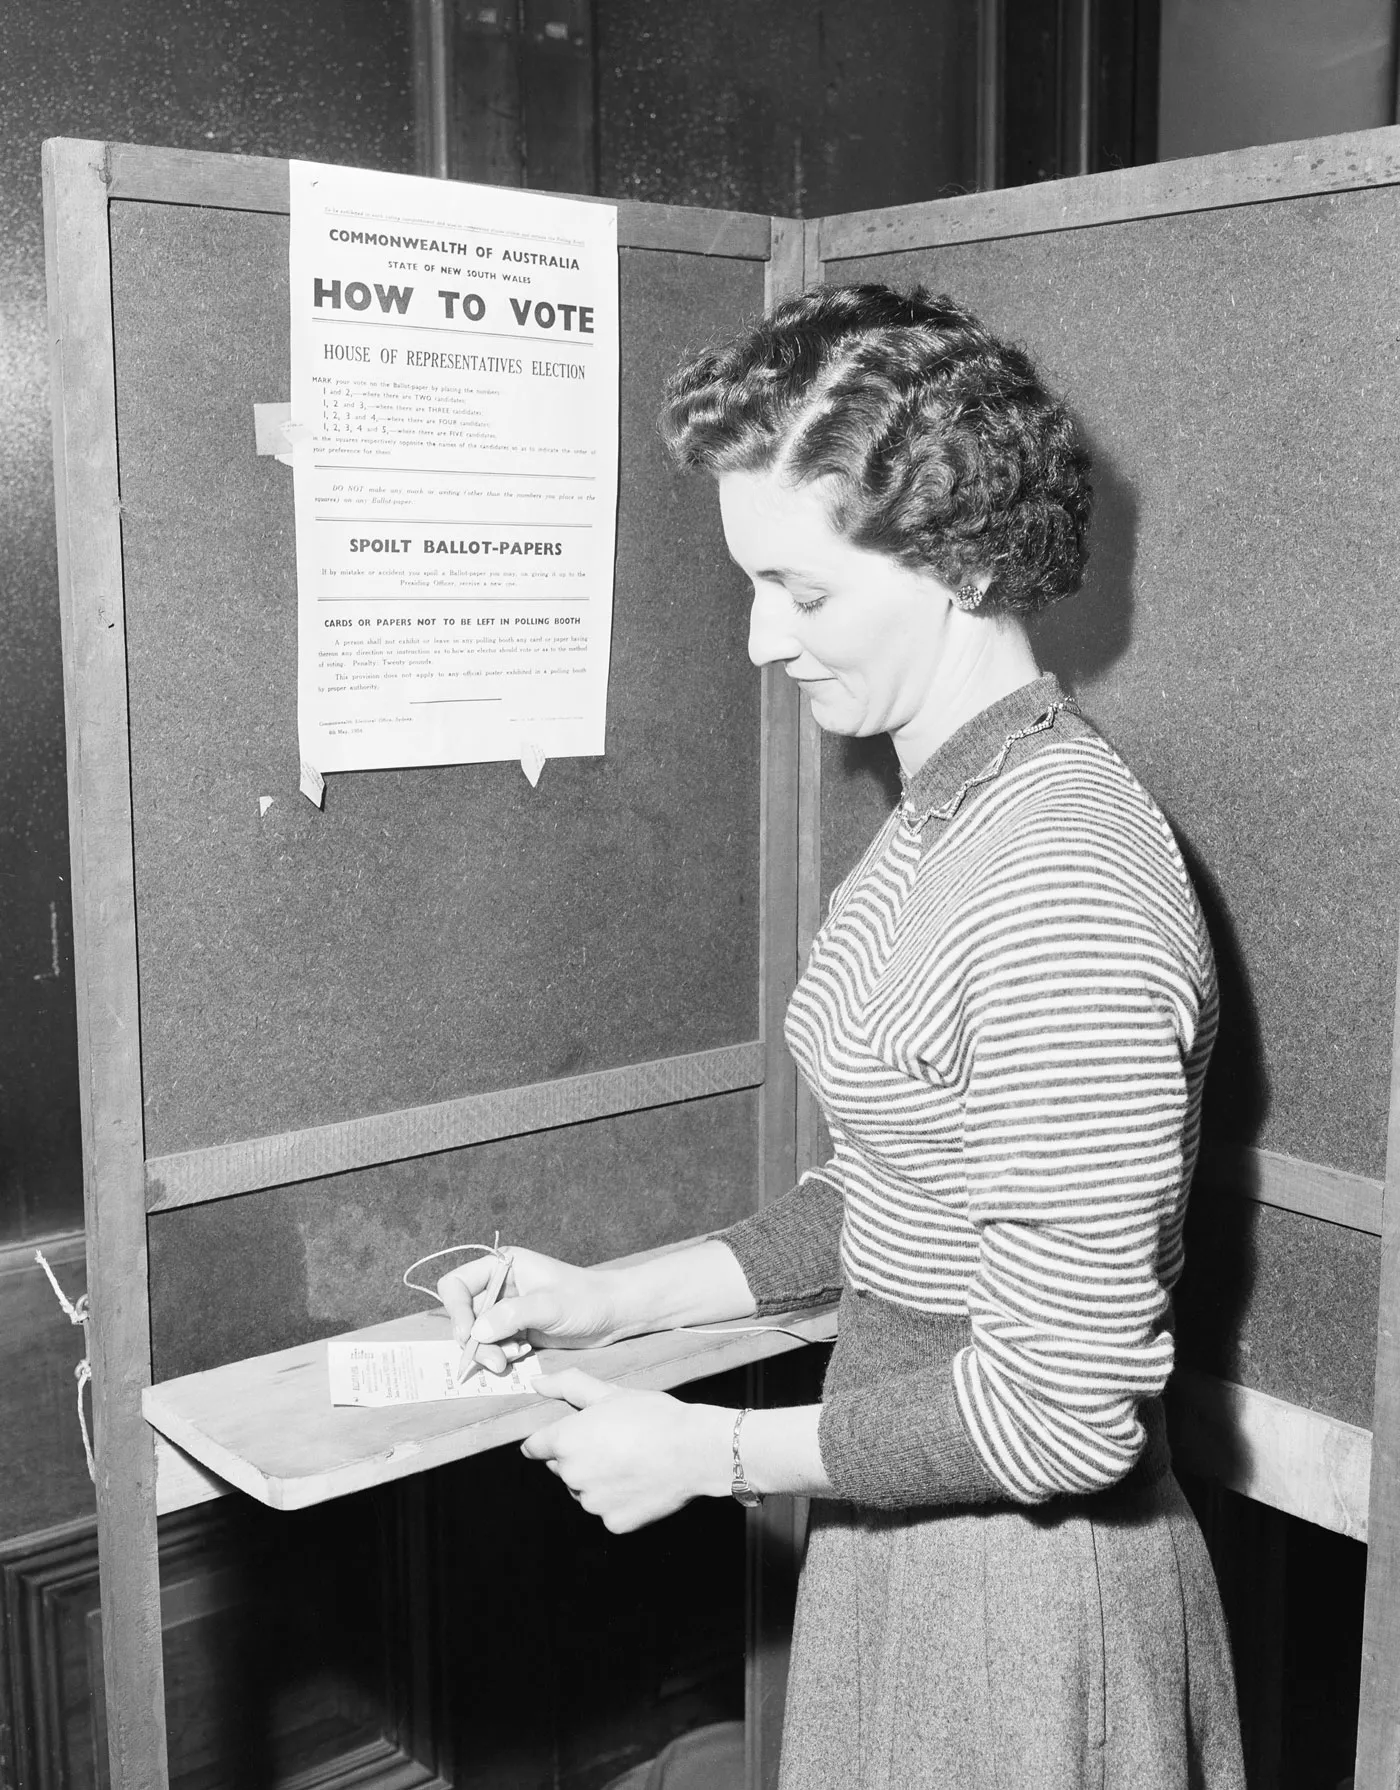 To be exhibited in each voting compartment and
COMMONWEALTH OF AUSTRALIA
STATE OF NEW SOUTH WALES
HOW TO VOTE
HOUSE OF REPRESENTATIVES ELECTION
MARK your vote on the Ballot-paper by placing the numbers:
1 and 2,—where there are TWO candidates.
1, 2 and 3,—where there are THREE candidates.
1, 2, 3 and 4,—where there are FOUR candidates.
1, 2, 3, 4 and 5,—where there are FIVE candidates.
in the squares respectively opposite the names of the candidates so as to indicate the order of
your preference for them.
DO NOT make any mark or writing (other than the numbers you place in the
squares) on any Ballot-paper.
SPOILT BALLOT-PAPERS
If by mistake or accident you spoil a Ballot-paper you may, on giving it up to the
Presiding Officer, receive a new one.
CARDS OR PAPERS NOT TO BE LEFT IN POLLING BOOTH
A person shall not exhibit or leave in any polling booth any card or paper having
thereon any direction or instruction as to how an elector should vote or as to the method
of voting. Penalty: Twenty pounds.
This provision does not apply to any official poster exhibited in a polling booth
by proper authority.
Commonwealth Electoral Office, Sydney,
May, 1954